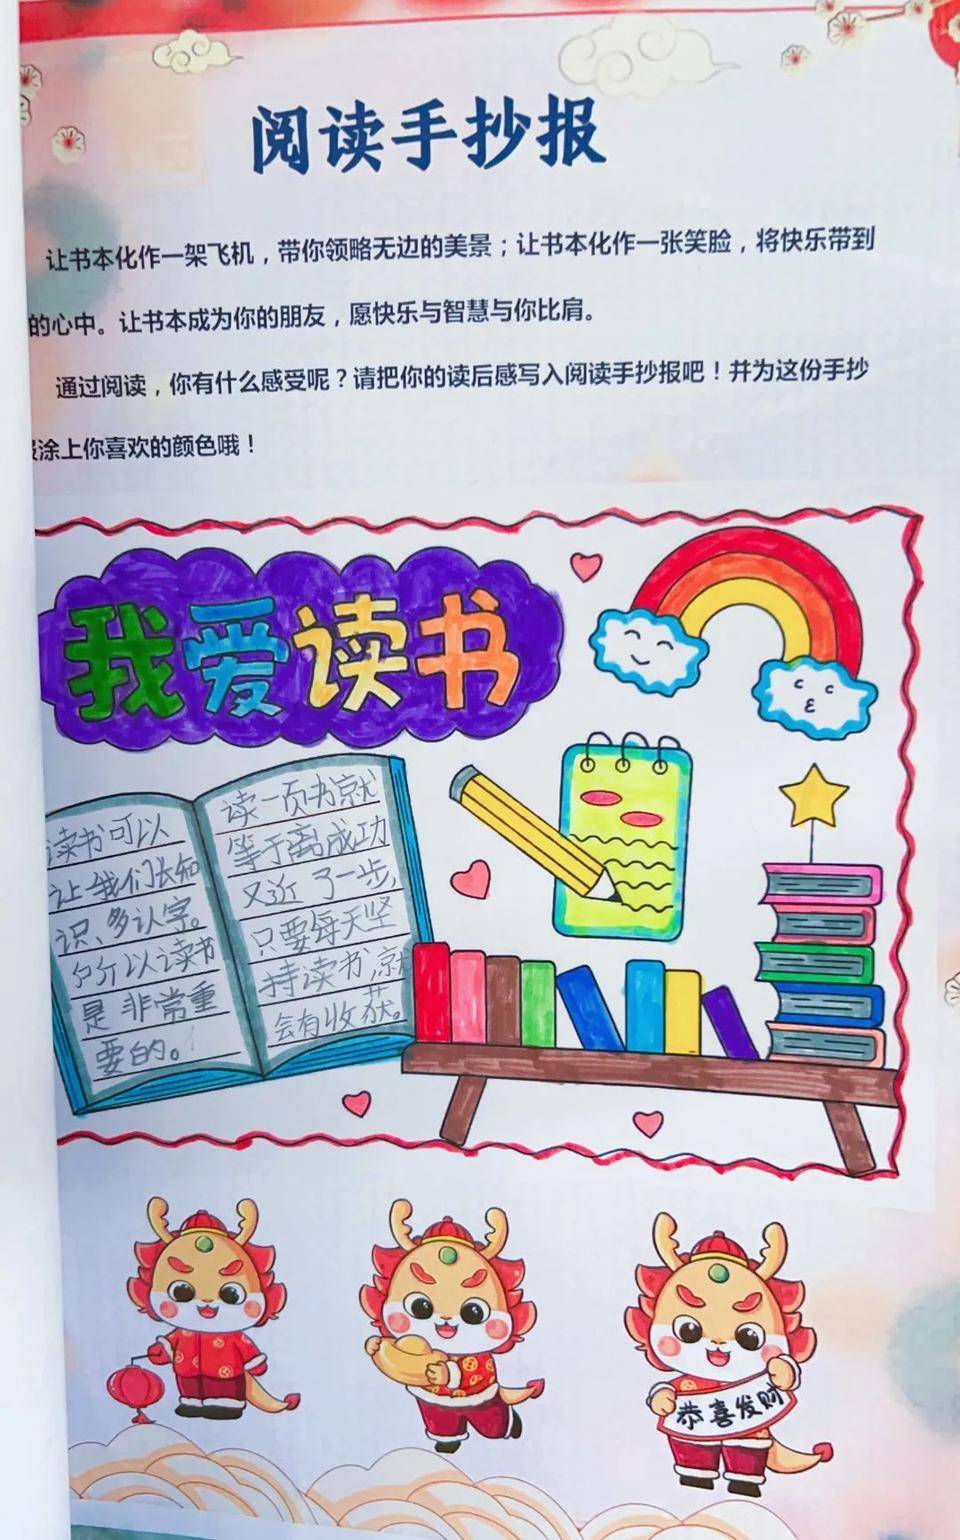 阅读手抄报
让书本化作一架飞机，带你领略无边的美景；让书本化作一张笑脸，将快乐带到
的心中。让书本成为你的朋友，愿快乐与智慧与你比肩。
通过阅读，你有什么感受呢？请把你的读后感写入阅读手抄报吧！并为这份手抄
报涂上你喜欢的颜色哦！
我爱读书
读书可以
让我们长知
识、多认字。
所以读书
是非常重
要的。
读一页书就
等于离成功
又近了一步，
只要每天坚
持读书，就
会有收获。
恭喜发财